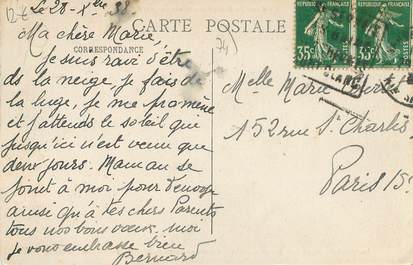 12€
Le 28-Xbre 38
CARTE POSTALE
74
CORRESPONDANCE
Ma chère Marie
Je suis ravi d'être
ds la neige je fais de
la luge, je me promène
et j'attends le soleil qui
jusqu'ici n'est venu que
deux jours. Maman se
joint à moi pour t'envoyer
ainsi qu'à tes chers Parents
tous nos bons voeux. moi
je vous embrasse bien
Bernard
35c
35c
Melle Marie
152 rue St Charles
Paris 15